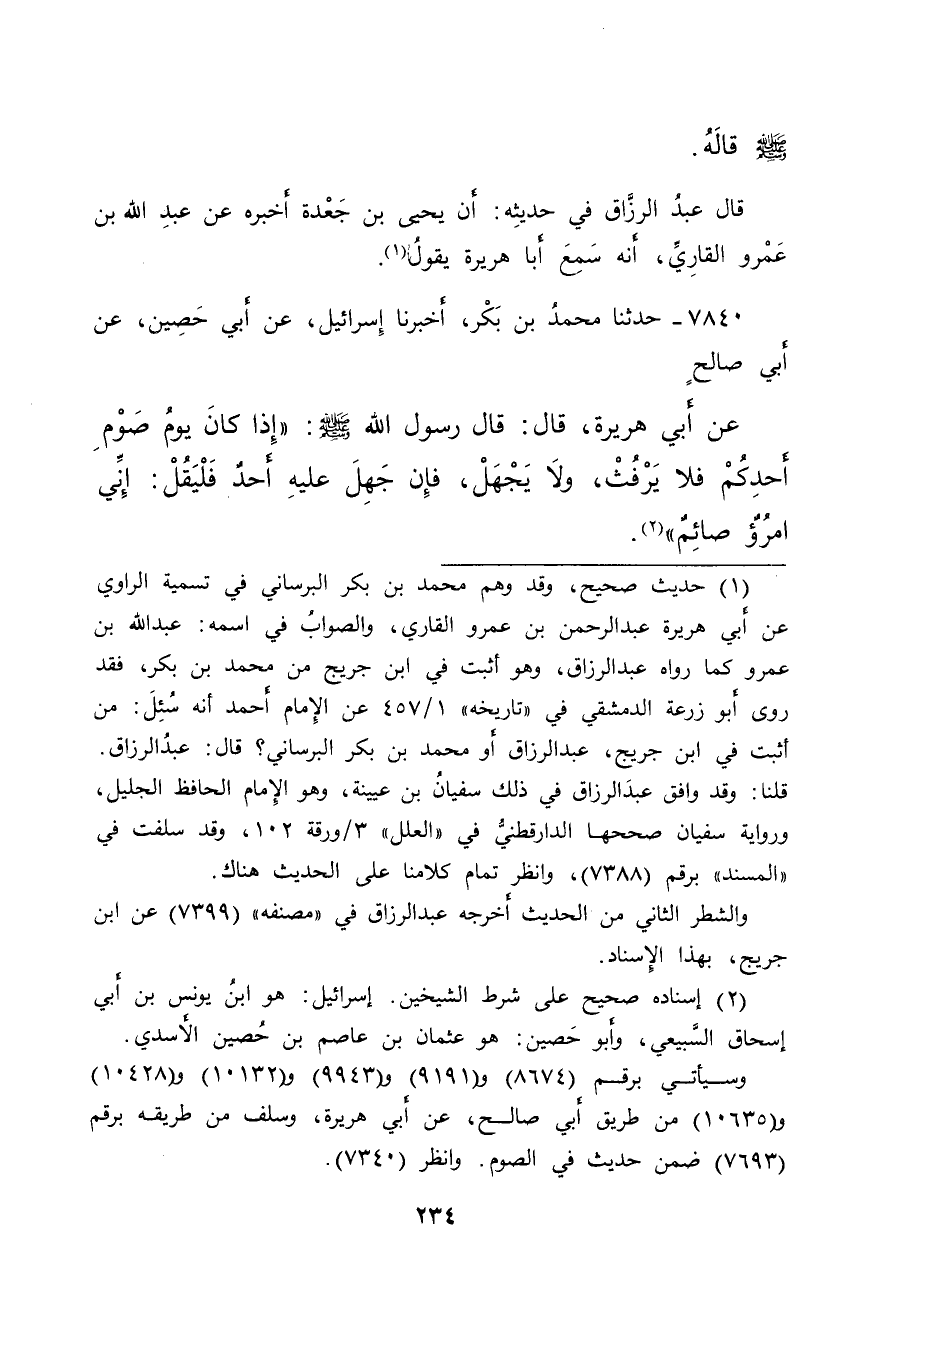 ﷺ قالَهُ.
قال عبدُ الرزَّاق في حديثِه: أَن يحيى بن جَعْدة أَخبره عن عبدِ الله بن
عَمْرو القارِيِّ، أَنه سَمِعَ أَبا هريرة يقولُ(١).
٧٨٤٠ـ حدثنا محمدُ بن بَكْر، أَخبرنا إِسرائيل، عن أَبي حَصِين، عن
أَبي صالحٍ
عن أَبي هريرة، قال: قال رسول الله ﷺ: «إِذا كانَ يومُ صَوْمِ
أَحدِكُمْ فلا يَرْفُثْ، ولَا يَجْهَلْ، فإِن جَهِلَ عليهِ أَحدٌ فَلْيَقُلْ: إِنِّي
امرُؤٌ صائِمٌ»(٢).
(١) حديث صحيح، وقد وهم محمد بن بكر البرساني في تسمية الراوي
عن أَبي هريرة عبدالرحمن بن عمرو القاري، والصوابُ في اسمه: عبدالله بن
عمرو كما رواه عبدالرزاق، وهو أثبت في ابن جريج من محمد بن بكر، فقد
روى أَبو زرعة الدمشقي في «تاريخه» ٤٥٧/١ عن الإِمام أَحمد أنه سُئِلَ: من
أثبت في ابن جريج، عبدالرزاق أَو محمد بن بكر البرساني؟ قال: عبدُالرزاق.
قلنا: وقد وافق عبدَالرزاق في ذلك سفيانُ بن عيينة، وهو الإِمام الحافظ الجليل،
ورواية سفيان صححها الدارقطنيُّ في «العلل» ٣/ورقة ١٠٢، وقد سلفت في
«المسند» برقم (٧٣٨٨)، وانظر تمام كلامنا على الحديث هناك.
والشطر الثاني من الحديث أَخرجه عبدالرزاق في «مصنفه» (٧٣٩٩) عن ابن
جريج، بهذا الإِسناد.
(٢) إِسناده صحيح على شرط الشيخين. إِسرائيل: هو ابنُ يونس بن أَبي
إِسحاق السَّبيعي، وأَبو حَصين: هو عثمان بن عاصم بن حُصين الأَسدي.
وسيأتي برقم (٨٦٧٤) و(٩١٩١) و(٩٩٤٣) و(١٠١٣٢) و(١٠٤٢٨)
و(١٠٦٣٥) من طريق أَبي صالح، عن أَبي هريرة، وسلف من طريقه برقم
(٧٦٩٣) ضمن حديث في الصوم. وانظر (٧٣٤٠).
٢٣٤